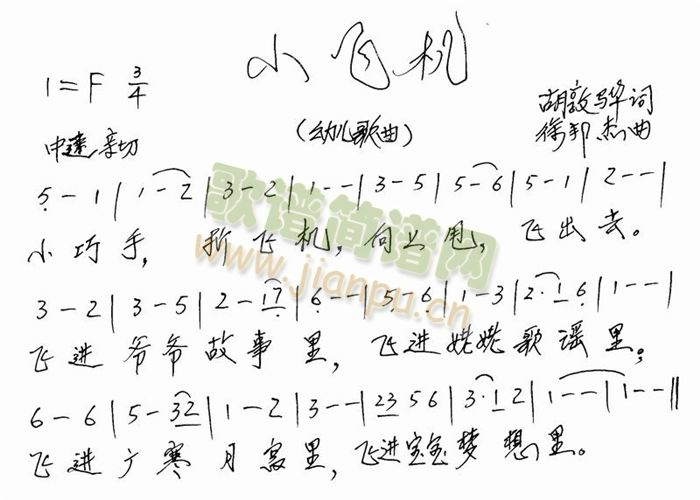 小飞机
1=F 3/4
(幼儿歌曲)
胡敦骅词
中速 亲切
徐邦杰曲
5 - 1 | 1 - 2 | 3 - 2 | 1 - - | 3 - 5 | 5 - 6 | 5 - 1 | 2 - - |
小巧手, 折飞机, 向上甩, 飞出去。
3 - 2 | 3 - 5 | 2 - 17 | 6 - - | 5 - 6 | 1 - 3 | 2·1 6 | 1 - - |
飞进爷爷故事里, 飞进姥姥歌谣里;
6 - 6 | 5 - 32 | 1 - 2 | 3 - - | 23 5 6 | 3·1 2 | 1 - - | 1 - - ‖
飞进广寒月宫里, 飞进宝宝梦想里。
歌谱简谱网
www.jianpu.cn